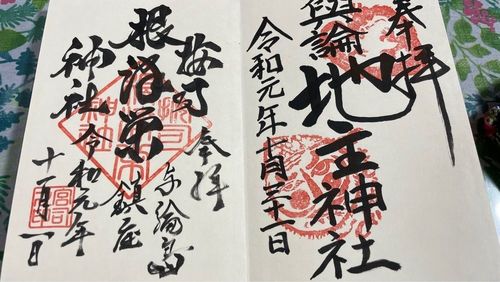 奉拝
與論地主神社
令和元年十月三十一日
按司
奉拝
与論島
鎮座
根津栄
神社
令和元年
十一月一日